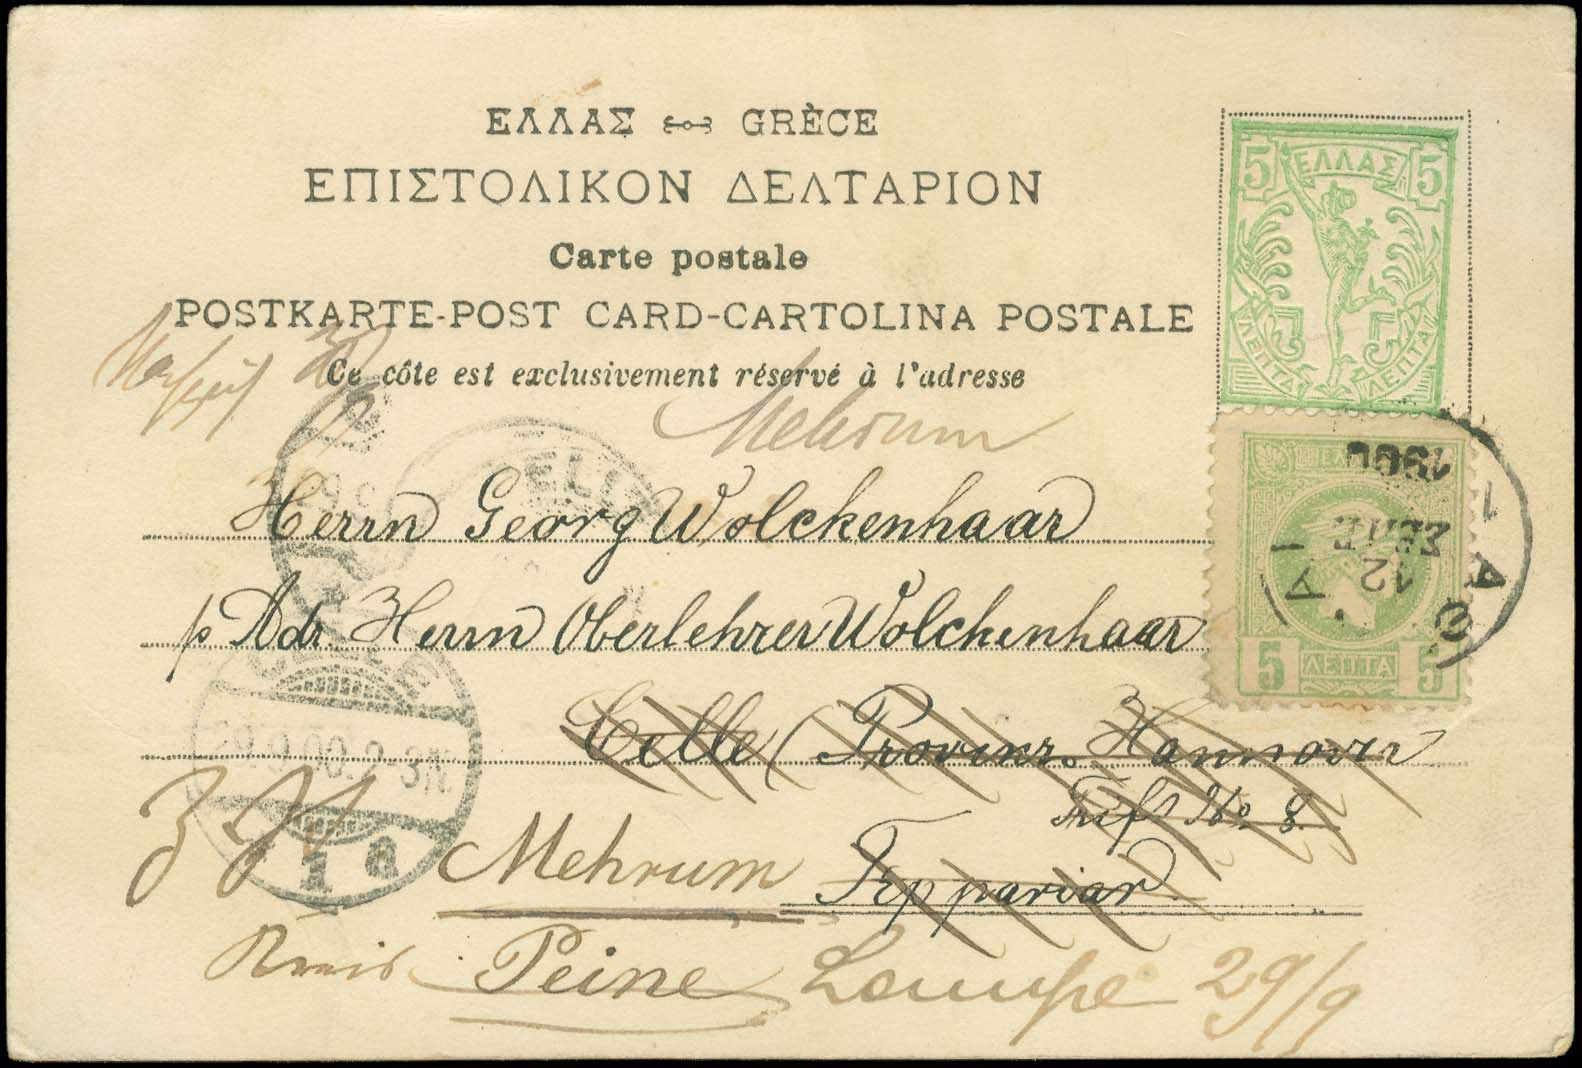 ΕΛΛΑΣ GRÈCE
ΕΠΙΣΤΟΛΙΚΟΝ ΔΕΛΤΑΡΙΟΝ
Carte postale
POSTKARTE-POST CARD-CARTOLINA POSTALE
Ce côte est exclusivement réservé à l'adresse
5 ΕΛΛΑΣ 5
ΛΕΠΤΑ ΛΕΠΤΑ
Mehrum
1900
ΣΕΠΤ.
12
ΑΘ
5 ΛΕΠΤΑ 5
Herrn Georg Wolckenhaar
p Adr. Herrn Oberlehrer Wolckenhaar
Celle (Provinz. Hannover
CELLE
29.9.00.2-3N.
1 a
Mehrum
Kreis Peine Lampe 29/9